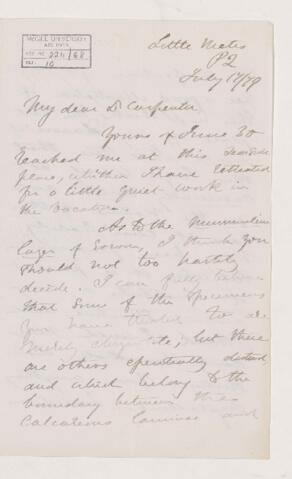 McGILL UNIVERSITY
ARCHIVES
ACC. NO. 224/68
REF. 10
Little Metis
P2
July 17/79
My dear Dr Carpenter
Yours of June 30
reached me at this seaside
place, whither I have retreated
for a little quiet work in
the vacation.
As to the nummuline
layer of Eozoon, I think you
should not too hastily
decide. I can fully believe
that some of the specimens
you have
merely, but there
are others essentially distinct
and which belong to the
boundary between the
calcareous laminae and